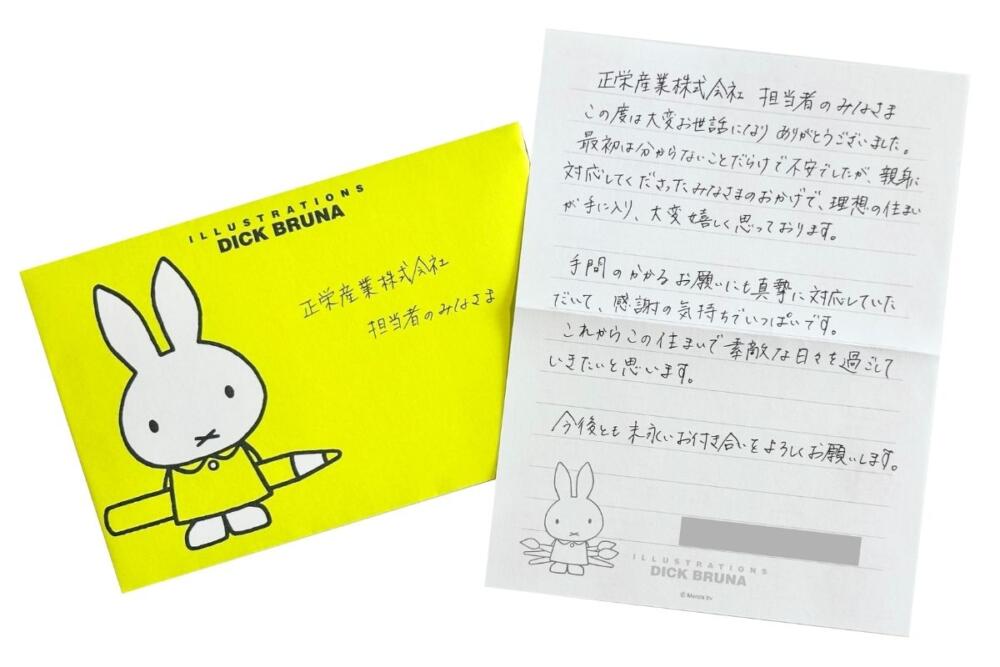 ILLUSTRATIONS
DICK BRUNA
正栄産業株式会社
担当者のみなさま
正栄産業株式会社 担当者のみなさま
この度は大変お世話になり ありがとうございました。
最初は分からないことだらけで不安でしたが、親身に
対応してくださったみなさまのおかげで、理想の住まい
が手に入り、大変嬉しく思っております。
手間のかかるお願いにも真摯に対応していた
だいて、感謝の気持ちでいっぱいです。
これからこの住まいで素敵な日々を過ごして
いきたいと思います。
今後とも末永いお付き合いをよろしくお願いします。
ILLUSTRATIONS
DICK BRUNA
© Mercis bv